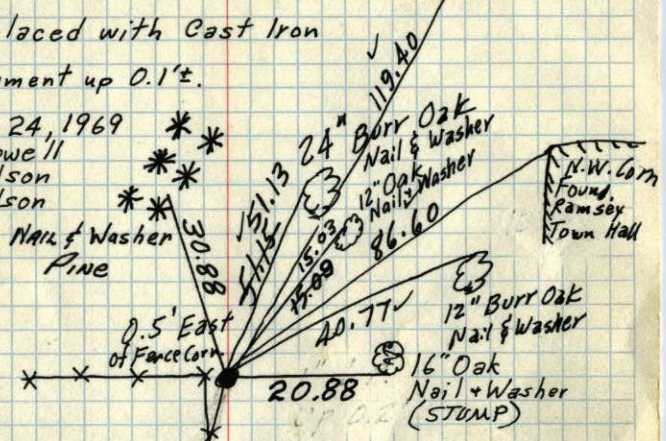 laced with Cast Iron
ment up 0.1'±.
24, 1969
owe ll
lson
lson
Nail & Washer
Pine
30.88
✓51.13
51.15
24" Burr Oak
Nail & Washer
✓
119.40
12" Oak
Nail & Washer
15.03
15.09
86.60
N.W. Corn
Found.
Ramsey
Town Hall
40.77✓
12" Burr Oak
Nail & Washer
0.5' East
of Fence Corn.
20.88
16" Oak
Nail + Washer
(STUMP)